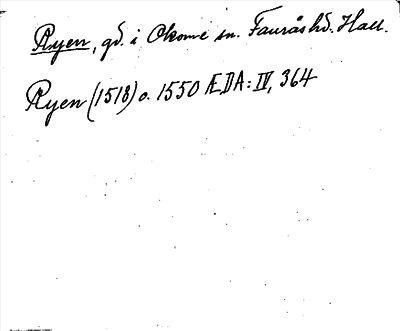 Ryen, gd. i Okome sn. Fauråshd. Hall.
Ryen (1518) o. 1550 ÆDA: IV, 364